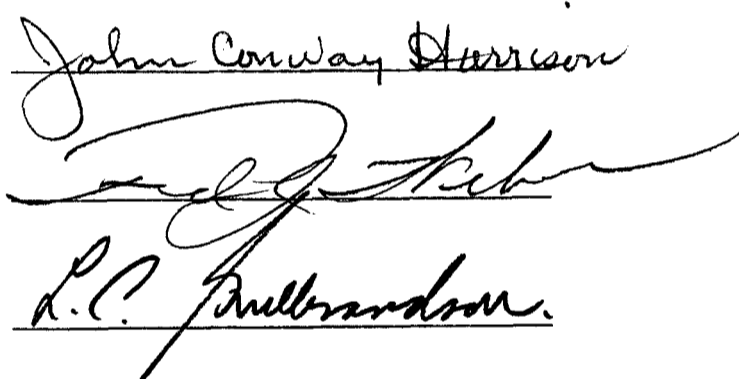 John Conway Harrison
Fred J. Weber
L.C. Gulbrandson.